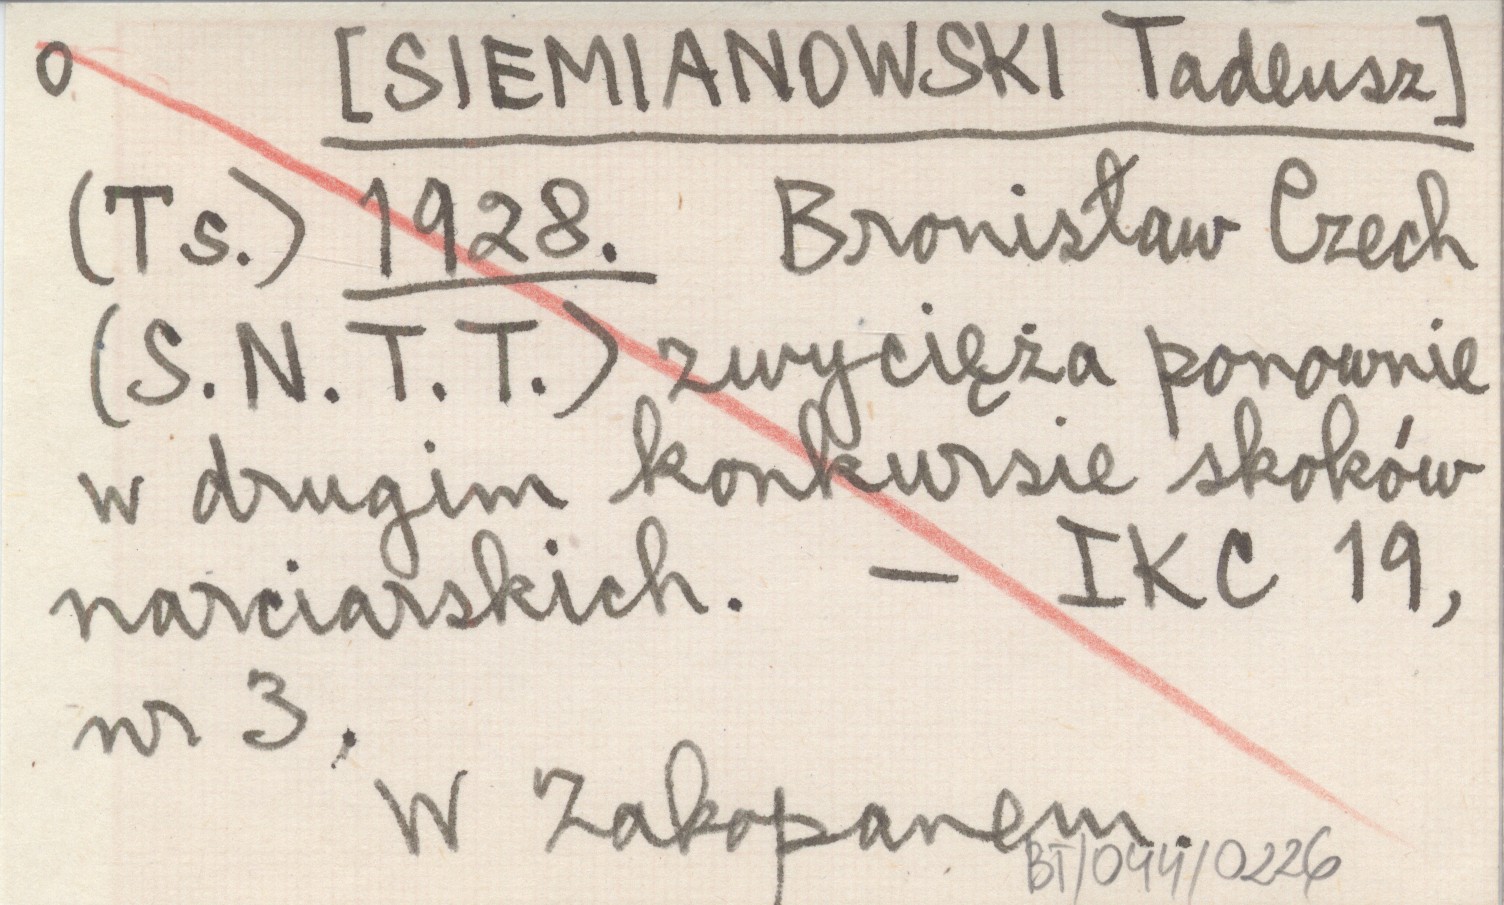 o [SIEMIANOWSKI Tadeusz]
(Ts.) 1928. Bronisław Czech
(S.N.T.T.) zwycięża ponownie
w drugim konkursie skoków
narciarskich. — IKC 19,
nr 3.
W Zakopanem.
BT/044/0226